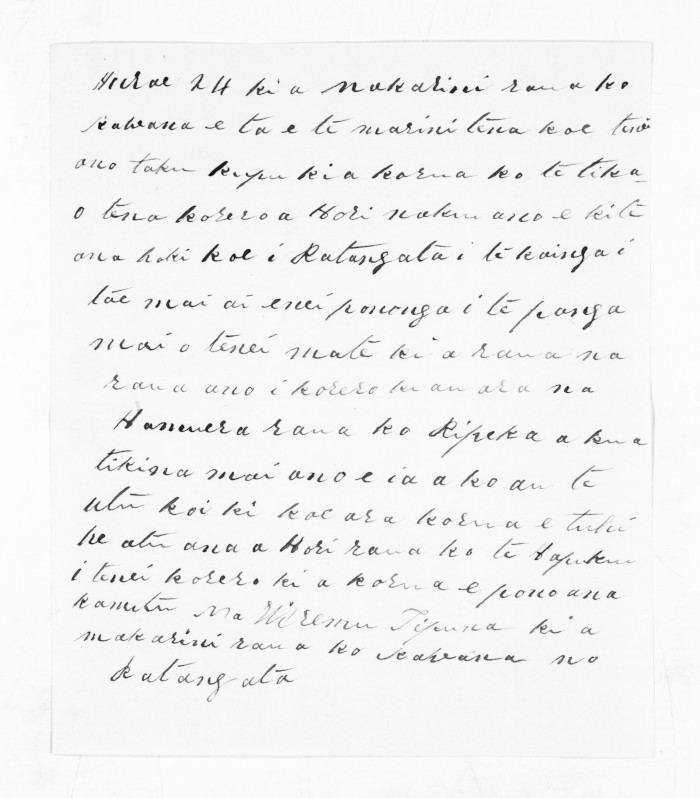 Hurae 24 ki a makarini raua ko
kawana e ta e te marini tena koe tenei
ano taku kupu ki a korua ko te tika
o tena korero a Hori nakuu ano e kite
ana hoki koe i Ratangata i te kainga i
tae mai ai enei pononga i te panga
mai o tenei mate ki a raua na
raua ano i korero ki au ara na
Hamuera raua ko Ripeka a kua
tikina mai ano e ia a ko au te
utu koi ki koe ara korua e tuhi
he atu ana a Hori raua ko te Hapuku
i tenei korero ki a korua e pono ana
kamutu Na Wiremu Tipuna ki a
makarini raua ko kawana no
Ratangata